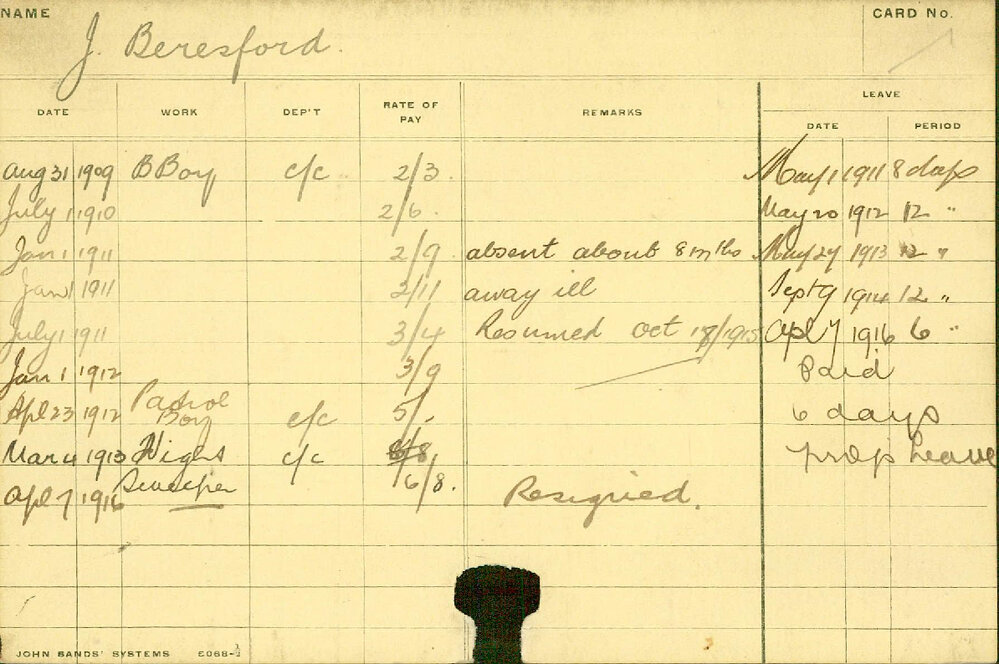 NAME J. Beresford. CARD No.
LEAVE
DATE WORK DEP'T RATE OF PAY REMARKS DATE PERIOD
Aug 31 1909 B Boy c/c 2/3. May 1 1911 8 days
July 1 1910 2/6. May 20 1912 12 "
Jan 1 1911 2/9. absent about 8 mths May 27 1913 12 "
Jan 1 1911 2/11 away ill Sept 9 1914 12 "
July 1 1911 3/4 Resumed Oct 18/1915 Apl 7 1916 6 "
Jan 1 1912 3/9 Paid
Apl 23 1912 Patrol Boy c/c 5/. 6 days
Mar 4 1913 Night c/c prop Leave
Sweeper 6/8.
Apl 7 1916 Resigned.
JOHN SANDS' SYSTEMS